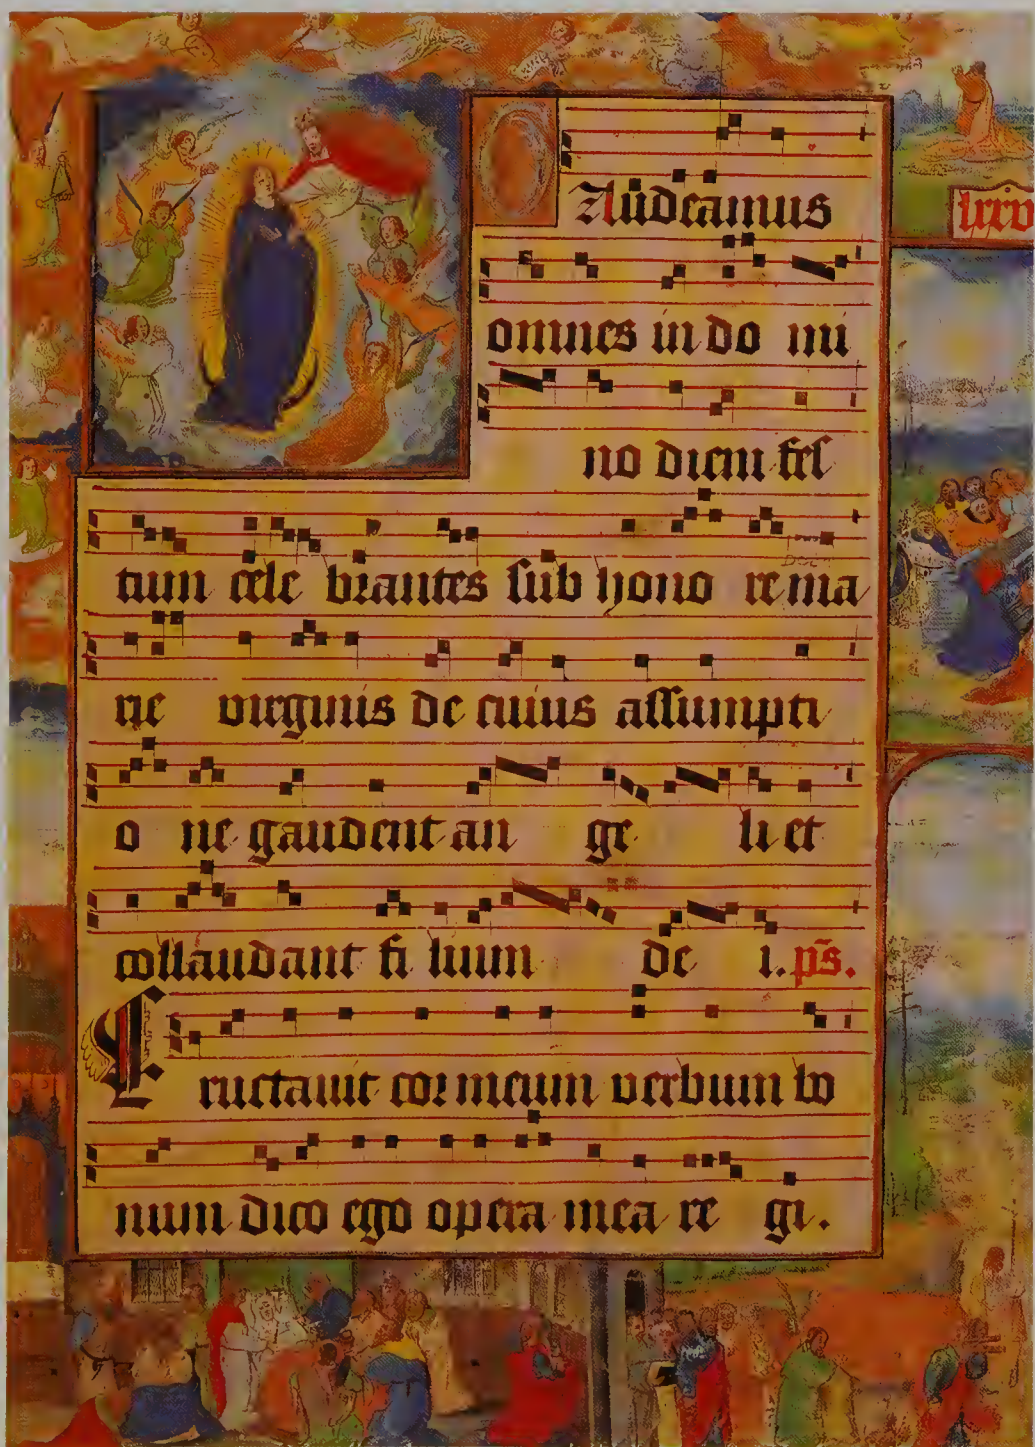 Gaudeamus
lxxv
omnes in do mi
no diem fes
tum cele brantes sub hono re ma
rie virginis de cuius assumpti
o ne gaudent an ge li et
collaudant fi lium de i. ps.
Eructauit cor meum verbum bo
num dico ego opera mea re gi.